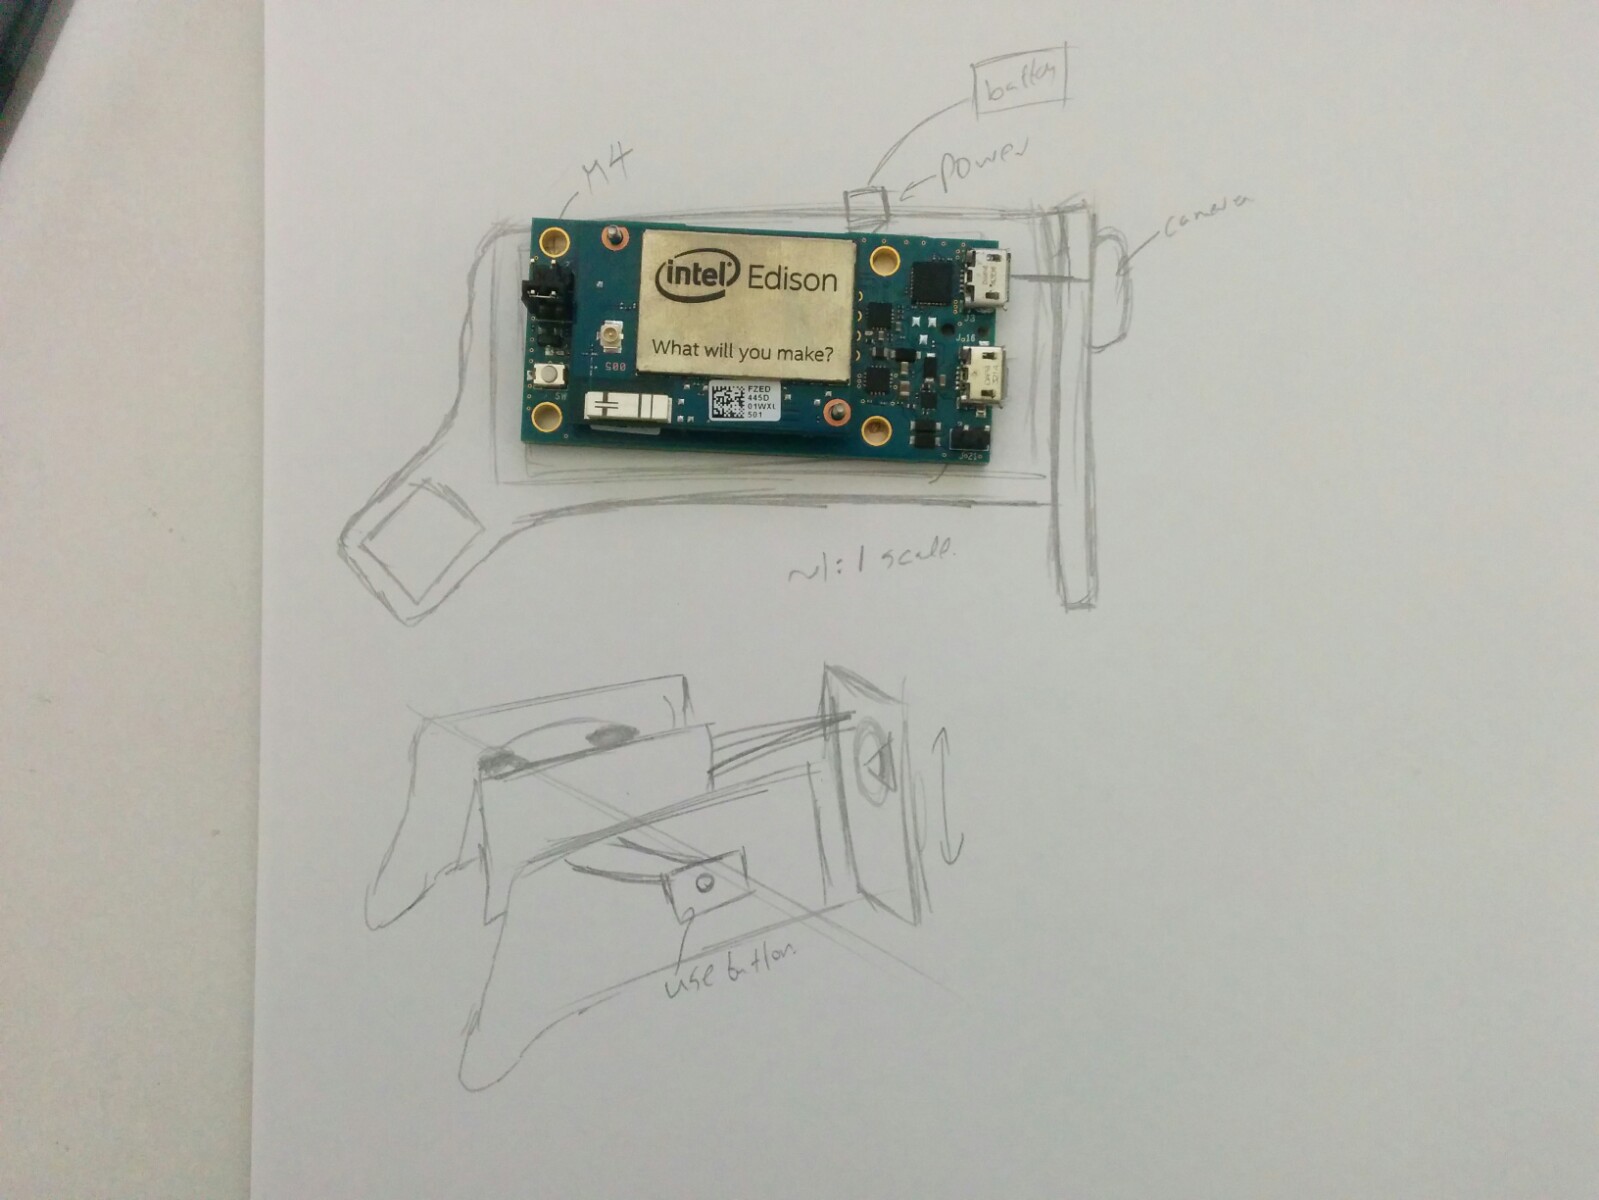 battery
M4
Power
camera
intel Edison
What will you make?
J3
J16
500
FZED
445D
01WXL
501
SW
J21
~1:1 scale.
use button